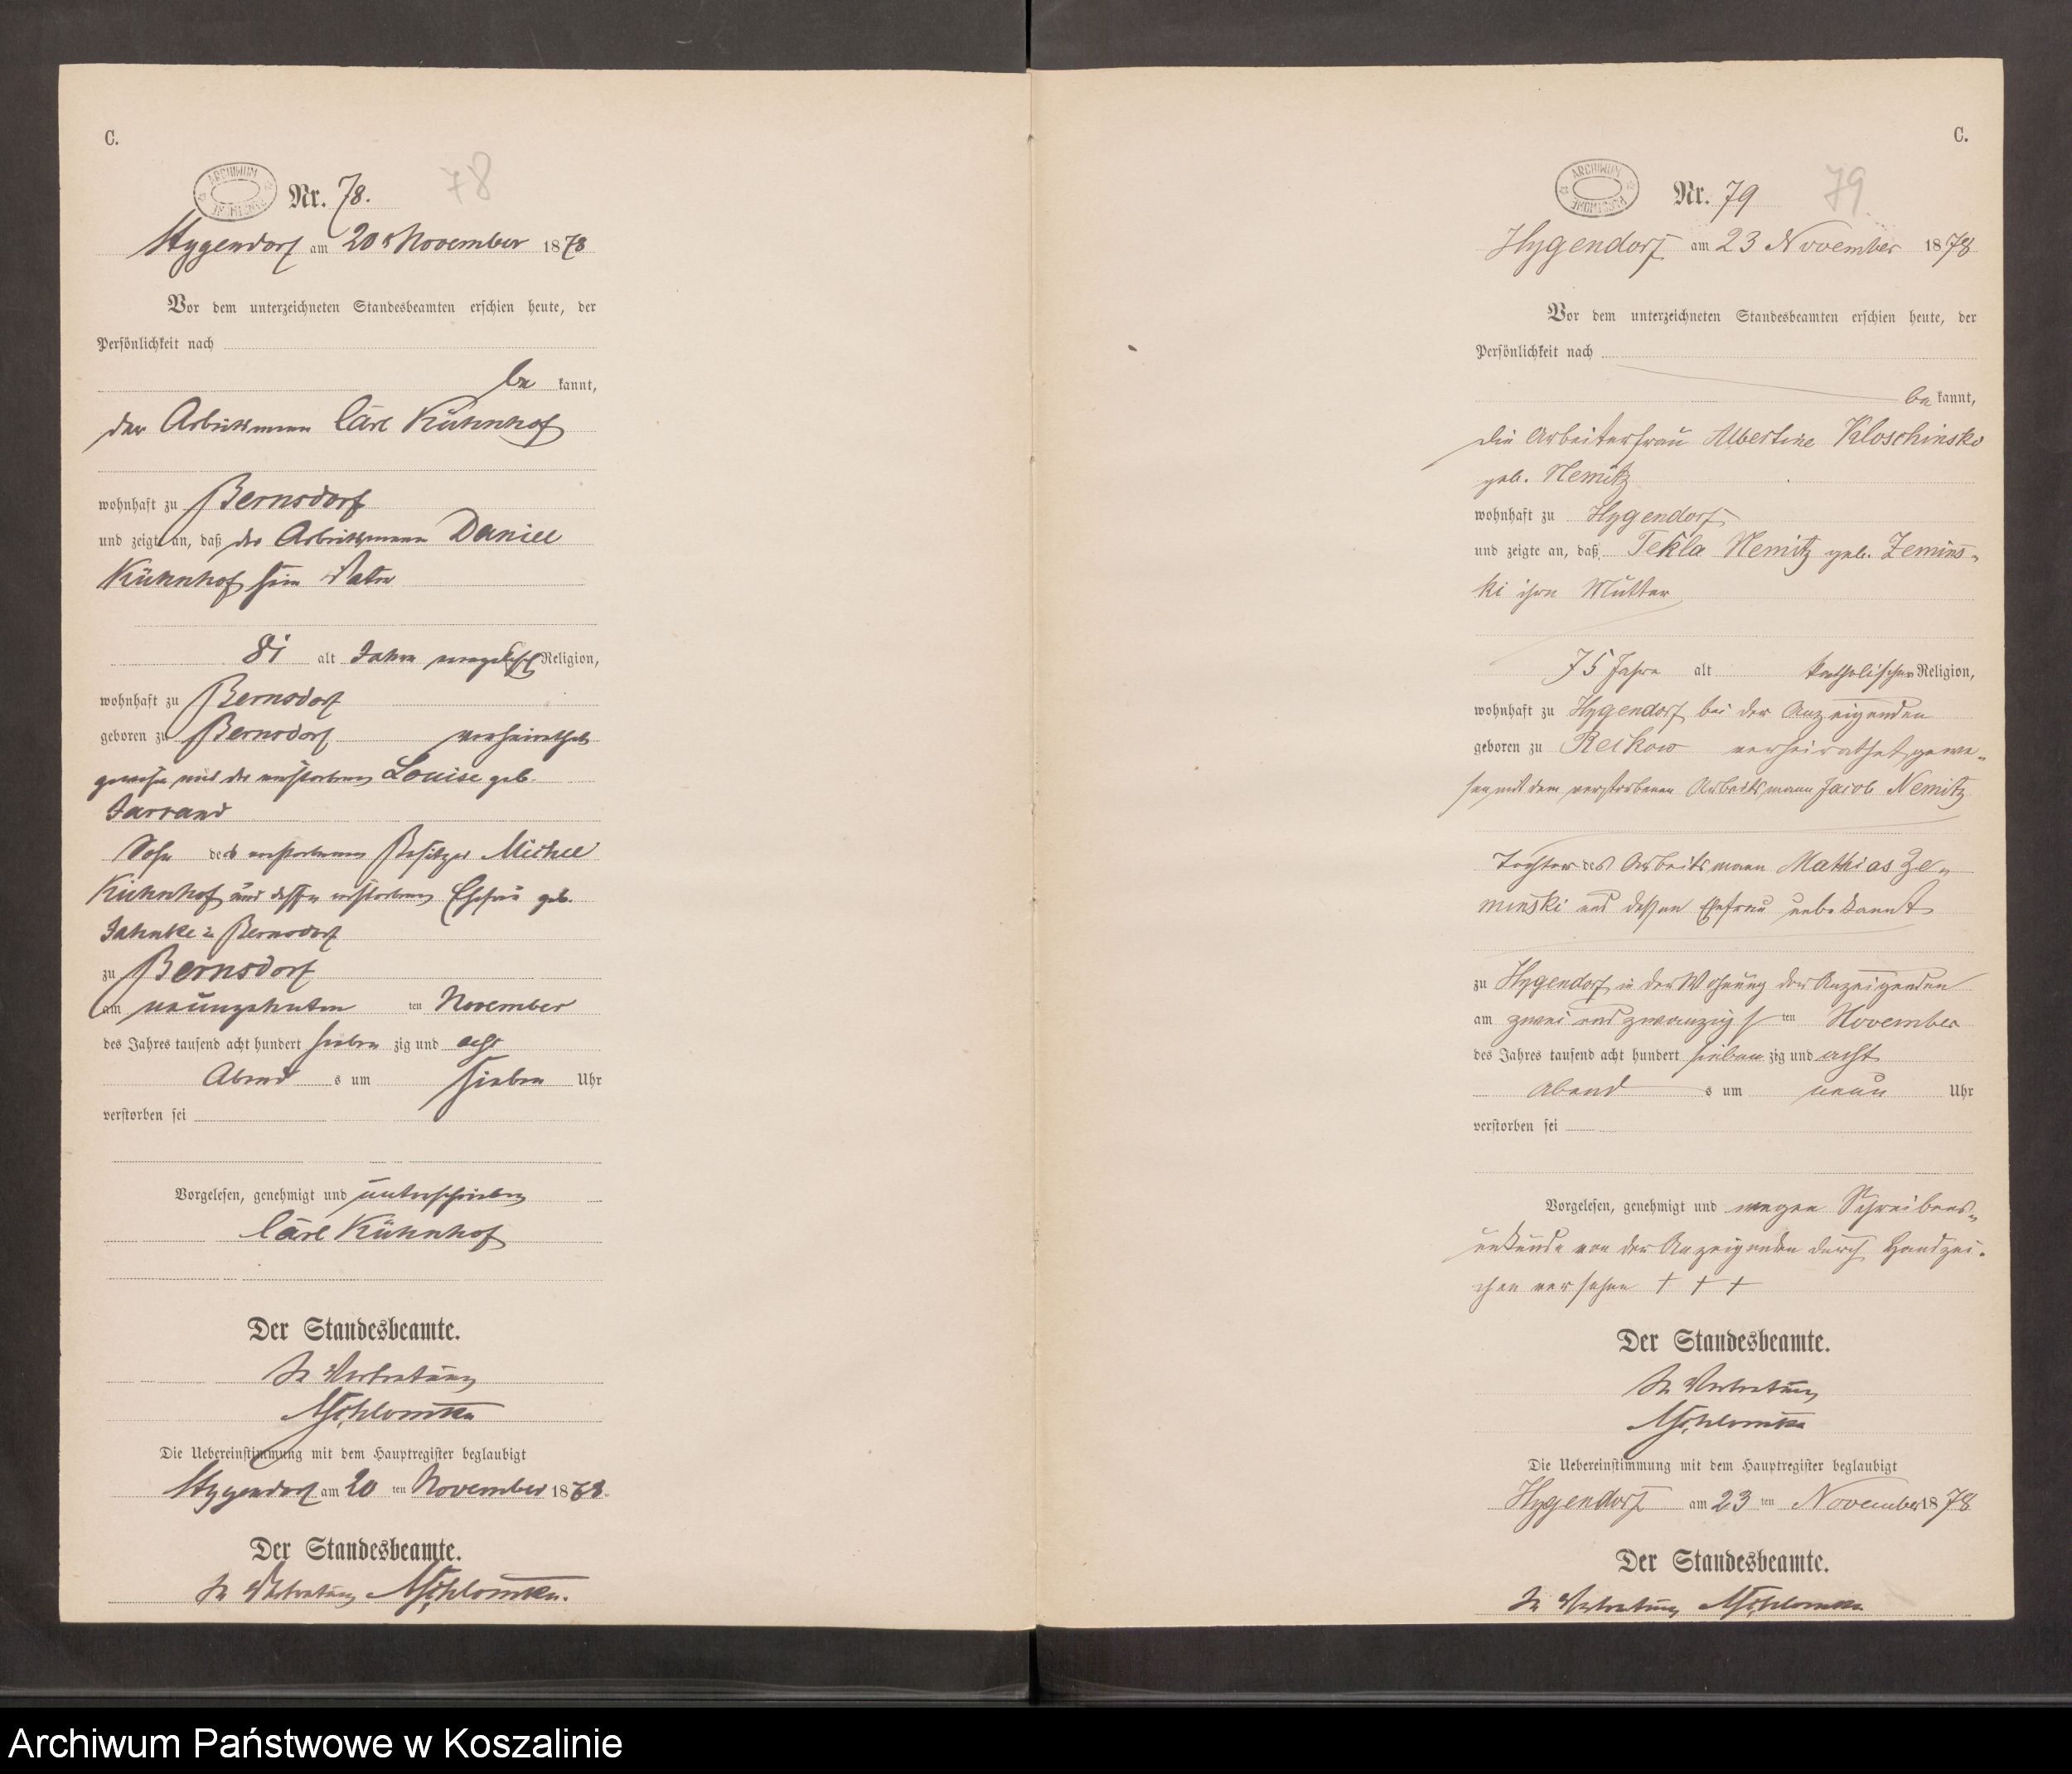 C.
ARCHIWUM
Nr. 78.
78
Hygendorf am 20 November 1878
Vor dem unterzeichneten Standesbeamten erschien heute, der
Persönlichkeit nach
be kannt,
der Arbeitsmann Carl Kühnhof
wohnhaft zu Bernsdorf
und zeigte an, daß der Arbeitsmann Daniel
Kühnhof sein Vater
81 alt Jahre evangelisch Religion,
wohnhaft zu Bernsdorf
geboren zu Bernsdorf verheirathet
gewesen mit der verstorbenen Louise geb.
Sohn des verstorbenen Besitzer Michel
Kühnhof und dessen verstorbenen Ehefrau geb.
Jahnke Bernsdorf
zu Bernsdorf
am neunzehnten ten November
des Jahres tausend acht hundert sieben zig und acht
Abend s um sieben Uhr
verstorben sei
Vorgelesen, genehmigt und unterschrieben
Carl Kühnhof
Der Standesbeamte.
In Vertretung
Die Uebereinstimmung mit dem Hauptregister beglaubigt
Hygendorf am 20 ten November 1878.
Der Standesbeamte.
In Vertretung
C.
ARCHIWUM
PAŃSTWOWE
Nr. 79
79
Hygendorf am 23 November 1878
Vor dem unterzeichneten Standesbeamten erschien heute, der
Persönlichkeit nach
be kannt,
die Arbeiterfrau Albertine Kloschinski
geb. Nemitz
wohnhaft zu Hygendorf
und zeigte an, daß Tekla Nemitz geb. Zemins-
ki ihre Mutter
75 Jahre alt katholischer Religion,
wohnhaft zu Hygendorf bei der Anzeigenden
geboren zu Reckow verheirathet gewe-
sen mit dem verstorbenen Arbeitsmann Jacob Nemitz
Tochter des Arbeitsmann Mathias Ze-
minski und dessen Ehefrau unbekannt
zu Hygendorf in der Wohnung der Anzeigenden
am zwei und zwanzigs ten November
des Jahres tausend acht hundert sieben zig und acht
Abend s um neun Uhr
verstorben sei
Vorgelesen, genehmigt und wegen Schreibens-
unkunde von der Anzeigenden durch Handzei-
chen versehen + + +
Der Standesbeamte.
In Vertretung
Die Uebereinstimmung mit dem Hauptregister beglaubigt
Hygendorf am 23 ten November 1878
Der Standesbeamte.
In Vertretung
Archiwum Państwowe w Koszalinie